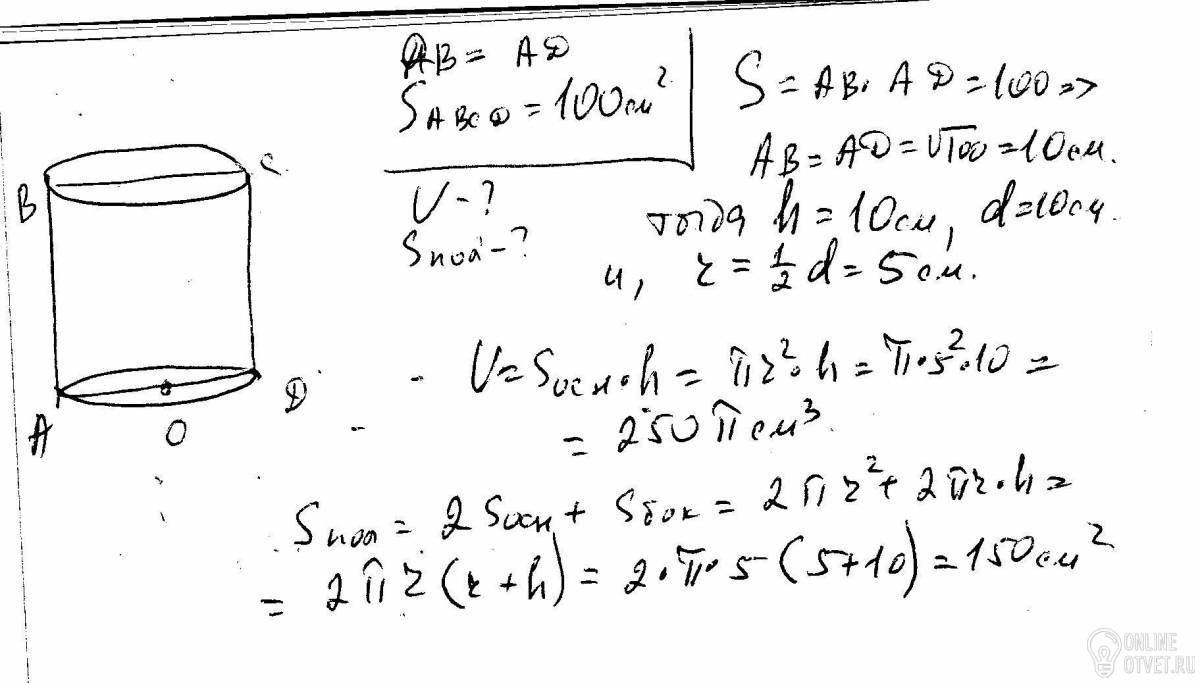 AB = AD
S ABCD = 100 см²
V - ?
Sпол - ?
S = AB · AD = 100 =>
AB = AD = √100 = 10 см.
тогда h = 10 см, d = 10 см.
и, r = 1/2 d = 5 см.
B
C
A
O
D
V = Sосн · h = πr² · h = π · 5² · 10 =
= 250 π см³.
Sпол = 2 Sосн + Sбок = 2πr² + 2πr · h =
= 2πr(r + h) = 2 · π · 5 (5 + 10) = 150 см²
ONLINE
OTVET.RU